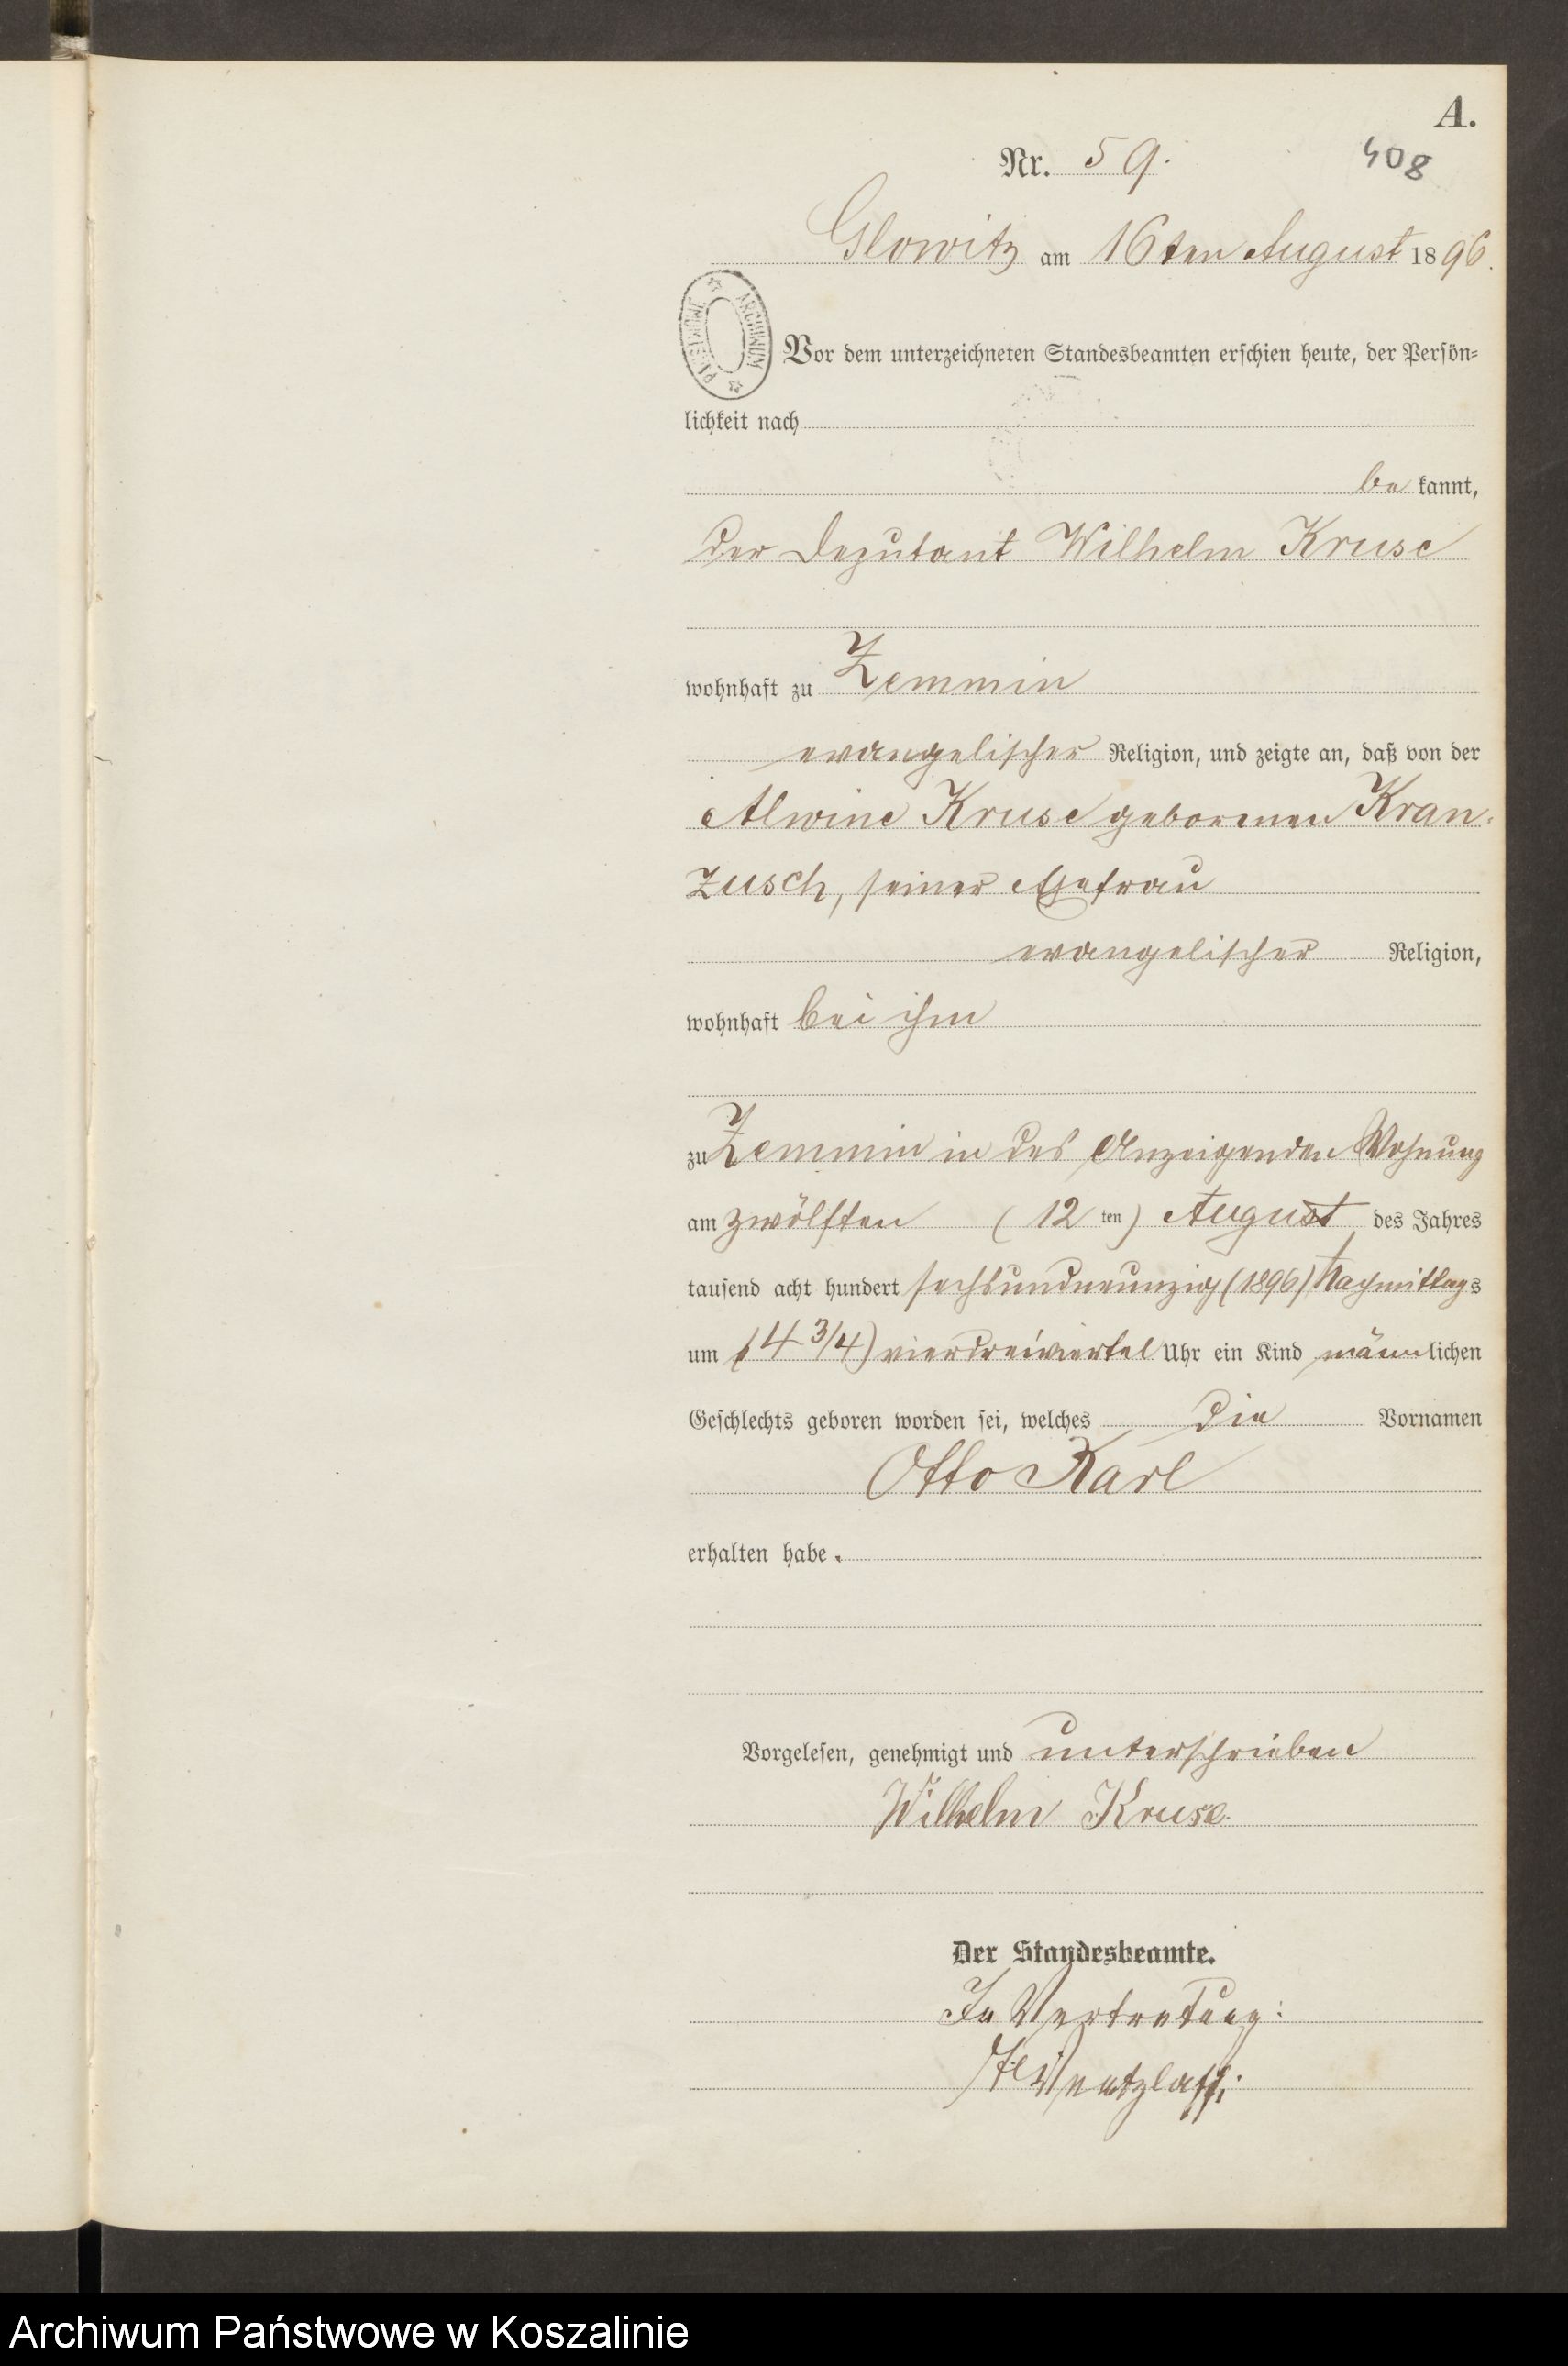 A.
Nr. 59.
408
Glowitz am 16ten August 1896.
ARCHIWUM PAŃSTWOWE
Vor dem unterzeichneten Standesbeamten erschien heute, der Persön-
lichkeit nach
be kannt,
der Deputant Wilhelm Kruse
wohnhaft zu Zemmin
evangelischer Religion, und zeigte an, daß von der
Alwine Kruse geborenen Kran-
zusch, seiner Ehefrau
evangelischer Religion,
wohnhaft bei ihm
zu Zemmin in des Anzeigenden Wohnung
am zwölften (12 ten) August des Jahres
tausend acht hundert sechsundneunzig (1896) Nachmittags
um (4 3/4) vierdreiviertel Uhr ein Kind männlichen
Geschlechts geboren worden sei, welches die Vornamen
Otto Karl
erhalten habe.
Vorgelesen, genehmigt und unterschrieben
Wilhelm Kruse.
Der Standesbeamte.
In Vertretung:
Wentzlaff.
Archiwum Państwowe w Koszalinie